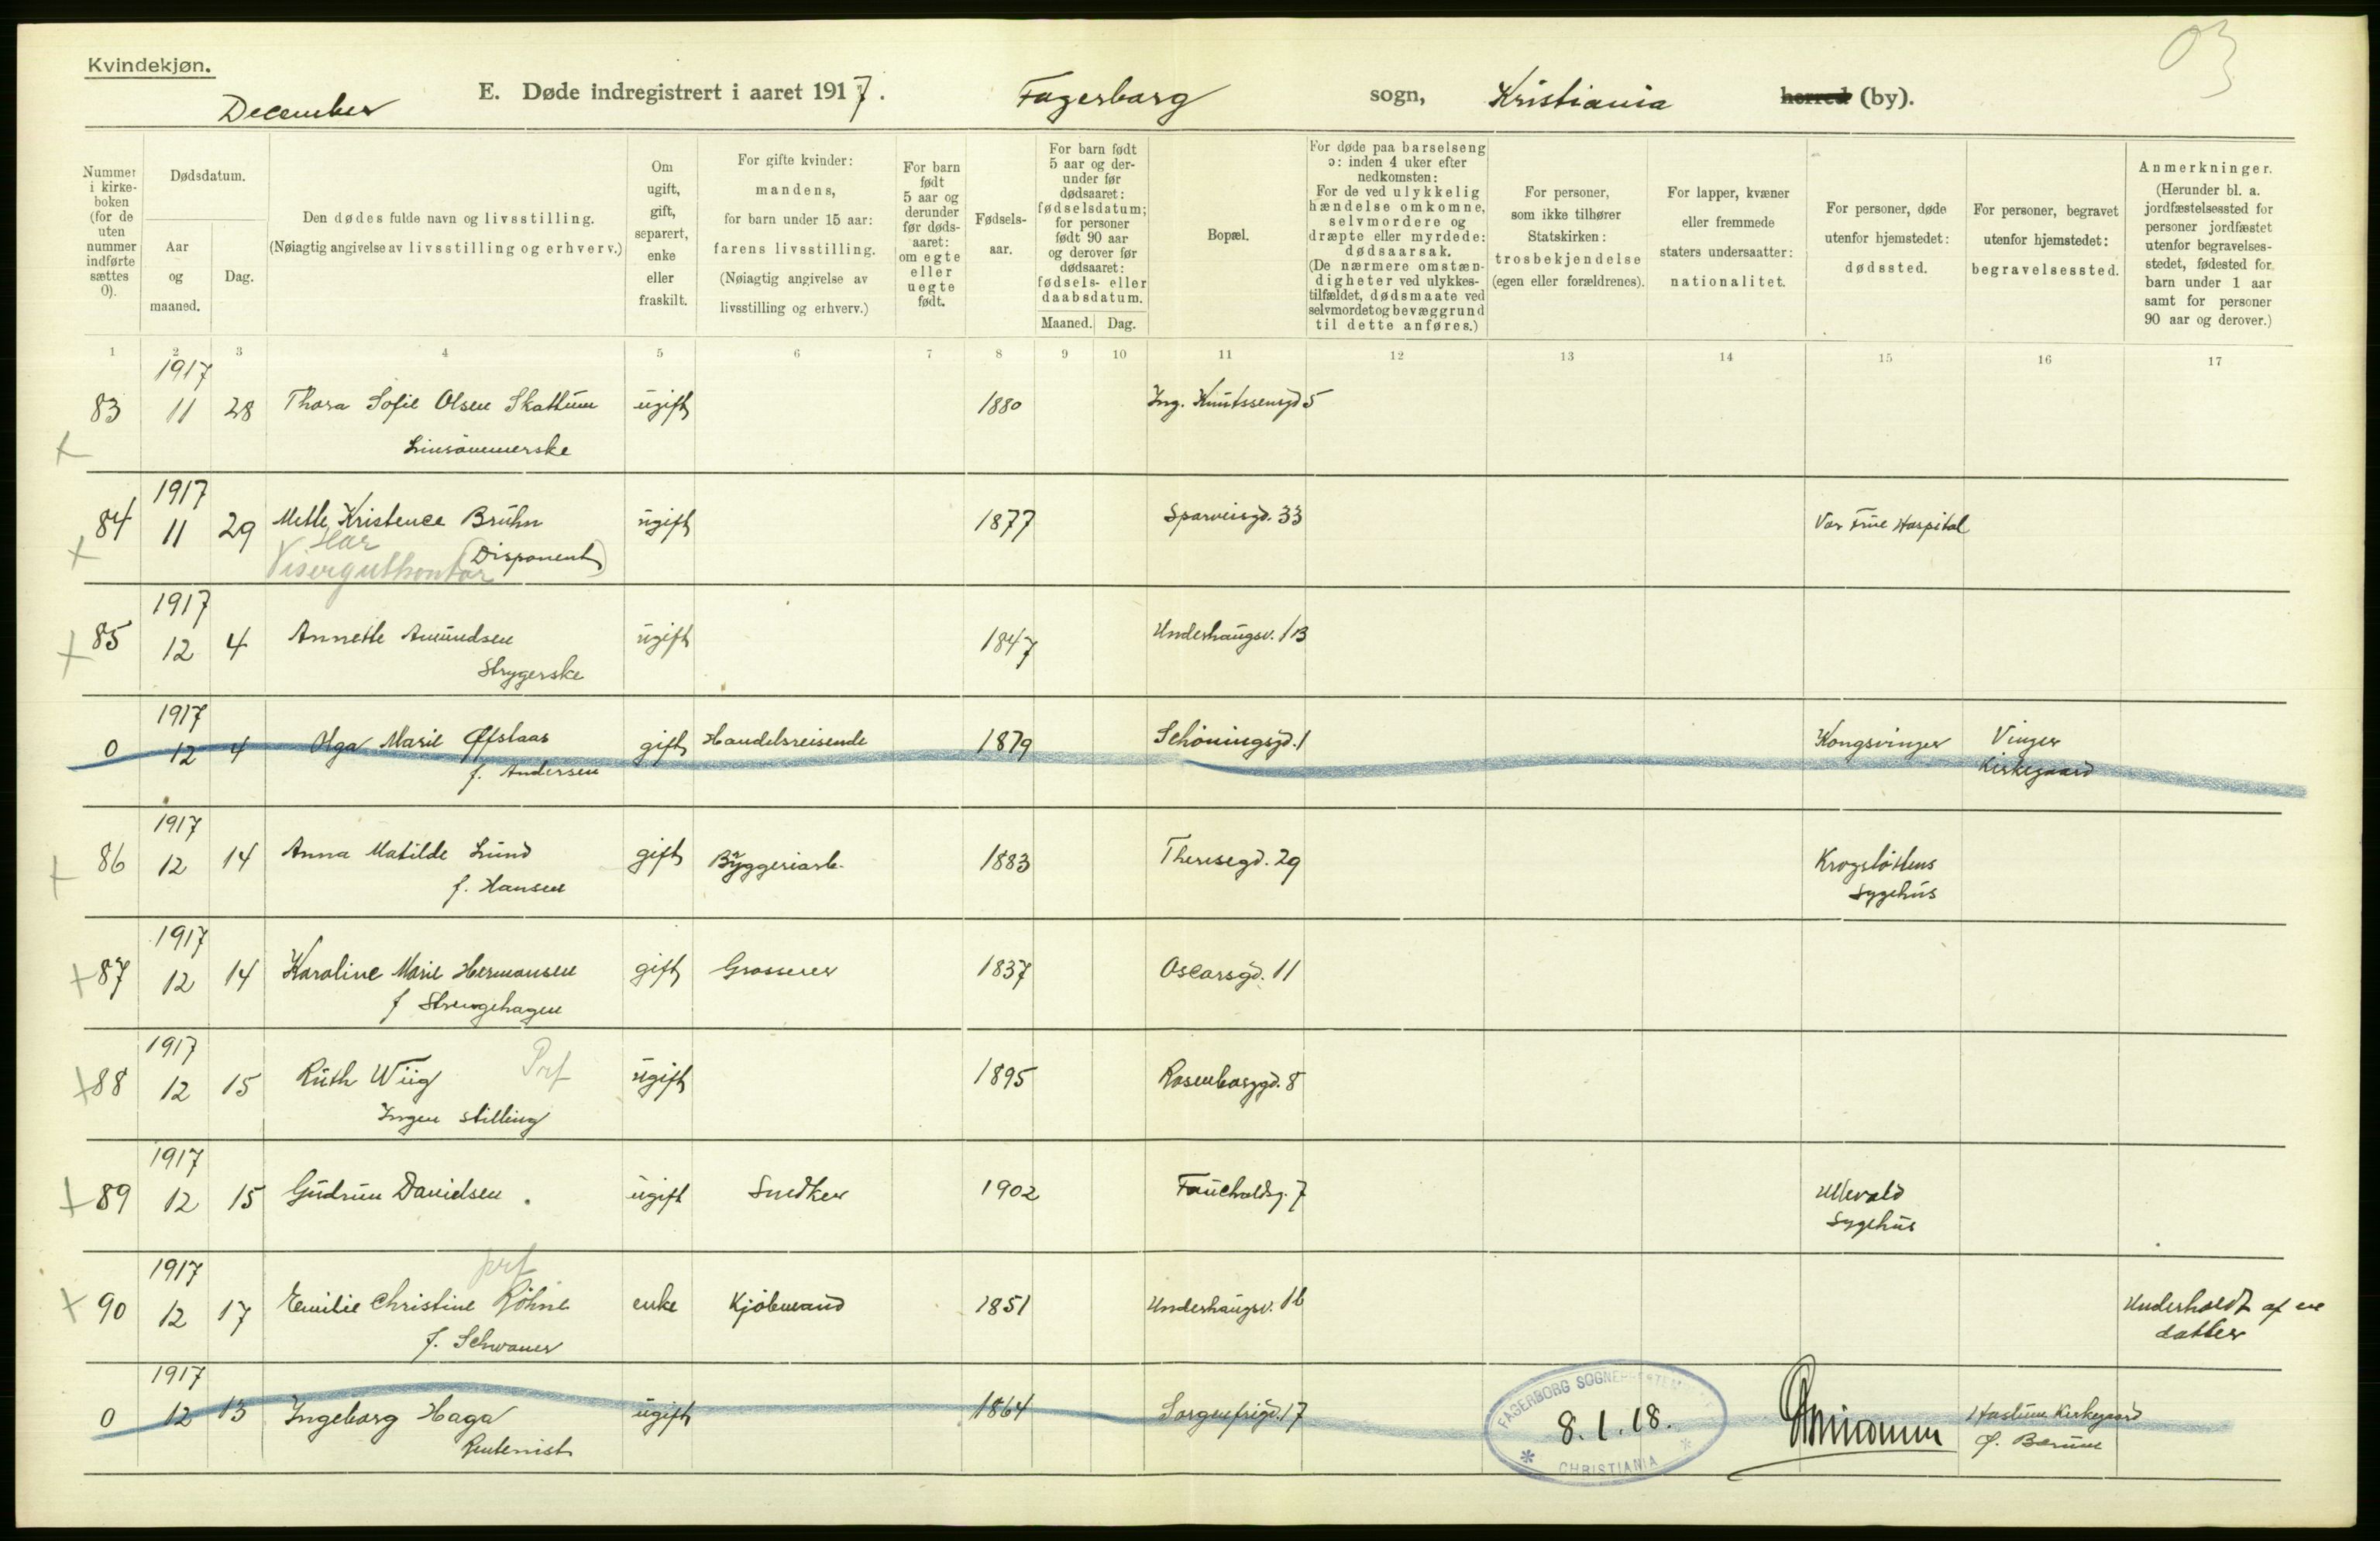 03
Kvindekjøn.
December E. Døde indregistrert i aaret 1917. Fagerborg sogn, Kristiania herred (by).
Nummer i kirke-boken (for de uten nummer indførte sættes 0).
Dødsdatum.
Aar og maaned.
Dag.
Den dødes fulde navn og livsstilling.
(Nøiagtig angivelse av livsstilling og erhverv.)
Om ugift, gift, separert, enke eller fraskilt.
For gifte kvinder: mandens, for barn under 15 aar: farens livsstilling. (Nøiagtig angivelse av livsstilling og erhverv.)
For barn født 5 aar og derunder før døds-aaret: om egte eller uegte født.
Fødsels-aar.
For barn født 5 aar og der-under før dødsaaret: fødselsdatum; for personer født 90 aar og derover før dødsaaret: fødsels- eller daabsdatum.
Maaned. Dag.
Bopæl.
For døde paa barselseng ɔ: inden 4 uker efter nedkomsten: For de ved ulykkelig hændelse omkomne, selvmordere og dræpte eller myrdede: dødsaarsak. (De nærmere omstæn-digheter ved ulykkes-tilfældet, dødsmaate ved selvmordet og bevæggrund til dette anføres.)
For personer, som ikke tilhører Statskirken: trosbekjendelse (egen eller forældrenes).
For lapper, kvæner eller fremmede staters undersaatter: nationalitet.
For personer, døde utenfor hjemstedet: dødssted.
For personer, begravet utenfor hjemstedet: begravelsessted.
Anmerkninger. (Herunder bl. a. jordfæstelsessted for personer jordfæstet utenfor begravelses-stedet, fødested for barn under 1 aar samt for personer 90 aar og derover.)
1 2 3 4 5 6 7 8 9 10 11 12 13 14 15 16 17
1917
83 11 28 Thora Sofie Olsen Skattum ugift 1880 Ing. Knutssensgd 5
Linsömmerske
1917
84 11 29 Mette Kristence Bruhn ugift 1877 Sporveisgd. 33 Vor Frue Hospital
Har (Disponent)
Visergutkontor
1917
85 12 4 Annette Amundsen ugift 1847 Underhaugsv. 1B
Strygerske
1917
0 12 4 Olga Marie Øfstaas gift Handelsreisende 1879 Schöningsgd. 1 Kongsvinger Vinger
f. Andersen Kirkegaard
1917
86 12 14 Anna Matilde Lund gift Byggeriarb. 1883 Theresegd. 29 Krogstöttens
f. Hansen Sygehus
1917
87 12 14 Karoline Marie Hermansen gift Grosserer 1837 Oscarsgd. 11
f Strengehagen
1917
88 12 15 Ruth Wiig Prf ugift 1895 Rosenborggd. 8
Ingen stilling
1917
89 12 15 Gudrun Danielsen. ugift Snedker 1902 Fauchaldsg. 7 Ullevold
Sygehus
1917 prf
90 12 17 Emilie Christine Röhne enke Kjöbmand 1851 Underhaugsv. 1b Underholdt af en
f. Schwaner datter
1917
0 12 13 Ingeborg Haga ugift 1864 Sorgenfrigd. 17 Haslum Kirkegaard
Rentenist Ø. Bærum
FAGERBORG SOGNEPRESTEM
8.1.18.
* CHRISTIANIA *